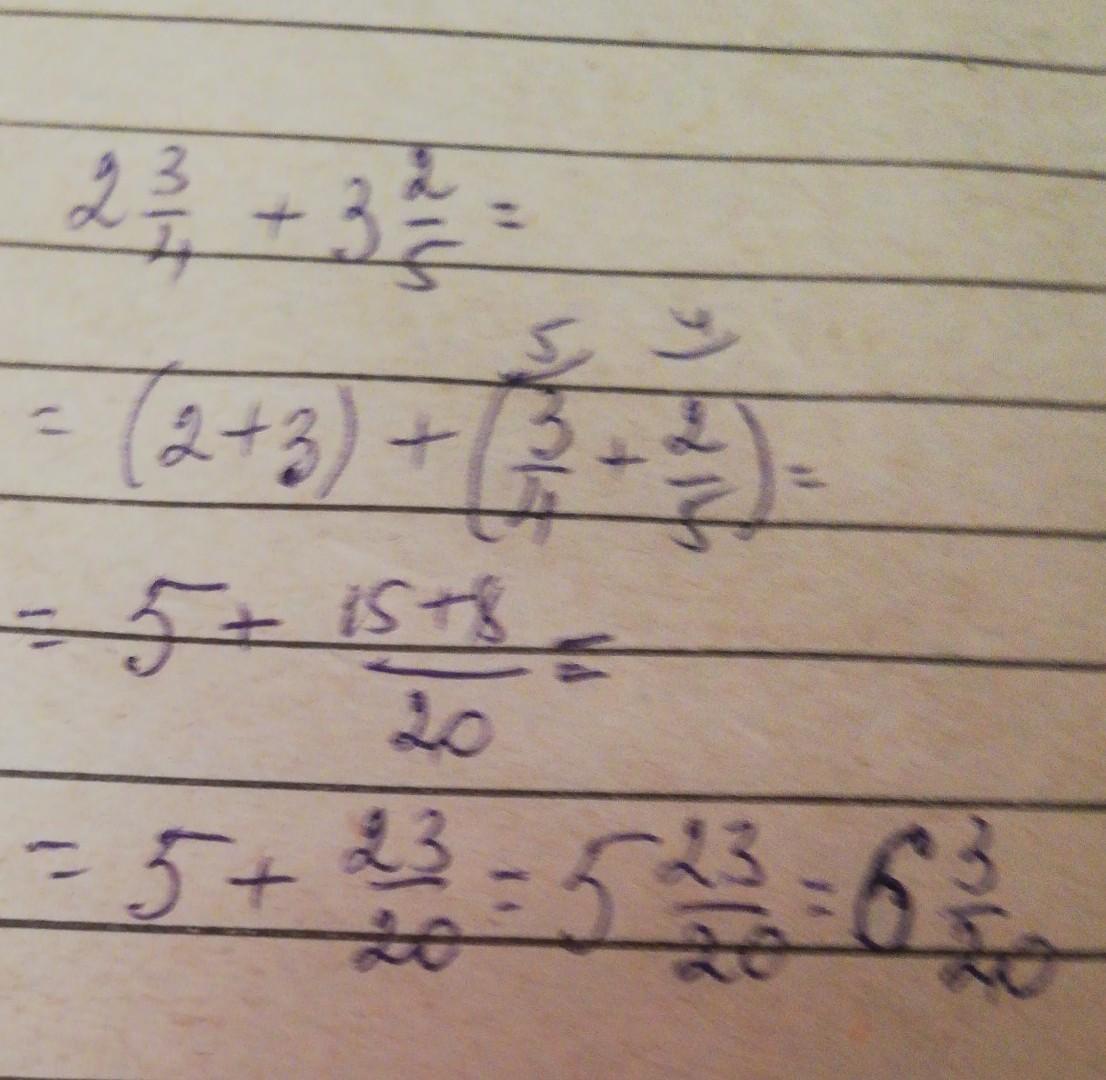 2 3/4 + 3 2/5 =
5 4
= (2+3) + (3/4 + 2/5) =
= 5 + 15+8/20 =
= 5 + 23/20 = 5 23/20 = 6 3/20